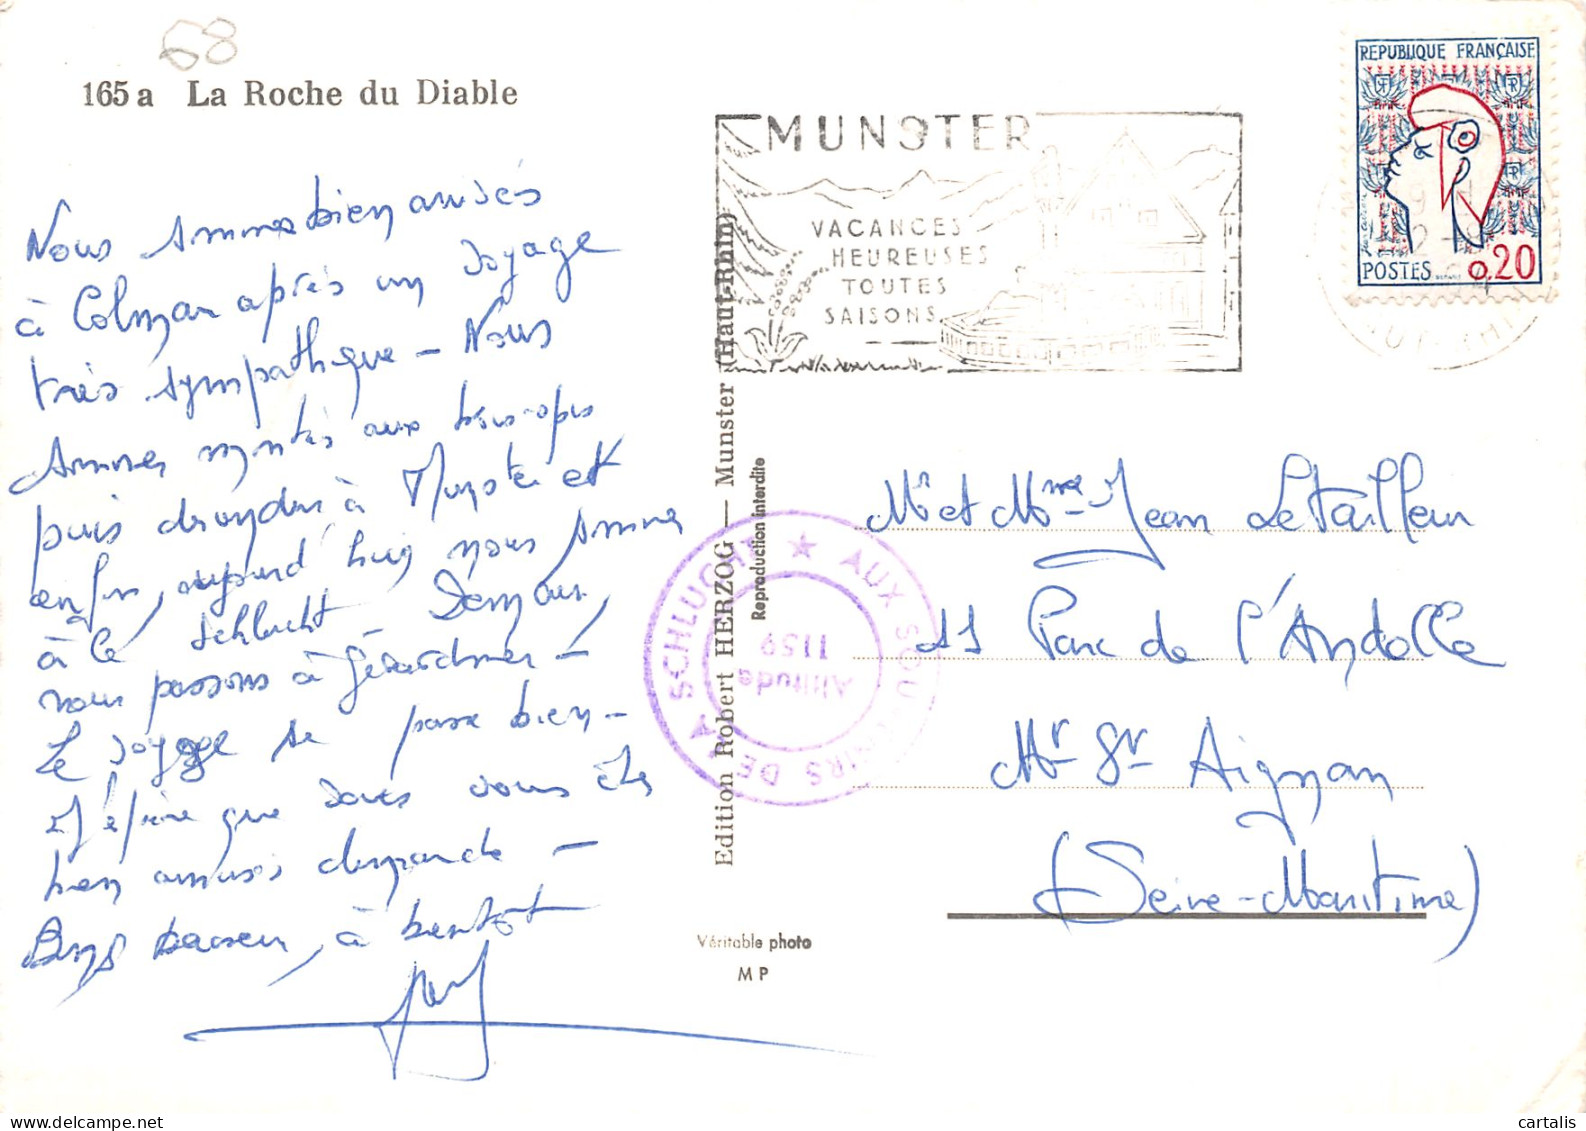 68
165 a La Roche du Diable
Nous sommes bien arrivés
à Colmar après un voyage
très sympathique – Nous
sommes montés aux trois-épis
puis à Munster et
enfin, aujourd'hui nous sommes
à la Schlucht – Demain,
nous passons à Gérardmer –
Le voyage se passe bien –
J'espère que vous êtes
bien arrivés dimanche –
Bons baisers, à bientôt
MUNSTER
VACANCES
HEUREUSES
TOUTES
SAISONS
REPUBLIQUE FRANÇAISE
POSTES 0,20
Edition Robert HERZOG — Munster (Haut-Rhin)
Reproduction interdite
AUX SOUVENIRS DE LA SCHLUCHT ★
Altitude
1159
Mr et Mme Jean Letailleur
11 Parc de l'Andelle
Mt St Aignan
(Seine-Maritime)
Véritable photo
M P
cartalis
delcampe.net